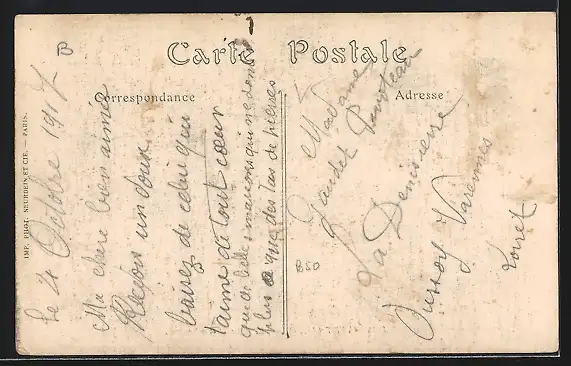 B
Carte Postale
Correspondance
Adresse
IMP. PHOT. NEURDEIN ET CIE. — PARIS.
le 4 Octobre 1917
Ma chere bien aimée
Reçois un doux
baisez de celui qui
t'aime de tout cœur
que de belles maisons qui ne sont
plus que des tas de pierres
Madame
Gaudet
La
Oussoy Varennes
Loiret
B50